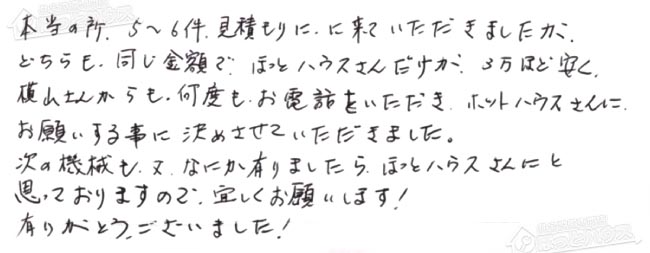 本当の所、5～6件、見積もりに、に来ていただきましたが、
どちらも、同じ金額で、ほっとハウスさんだけが、3万ほど安く、
横山さんからも、何度も、お電話をいただき、ホットハウスさんに、
お願いする事に決めさせていただきました。
次の機械も、又、なにか有りましたら、ほっとハウスさんにと
思っておりますので、宜しくお願いします!
有りがとう、ございました!